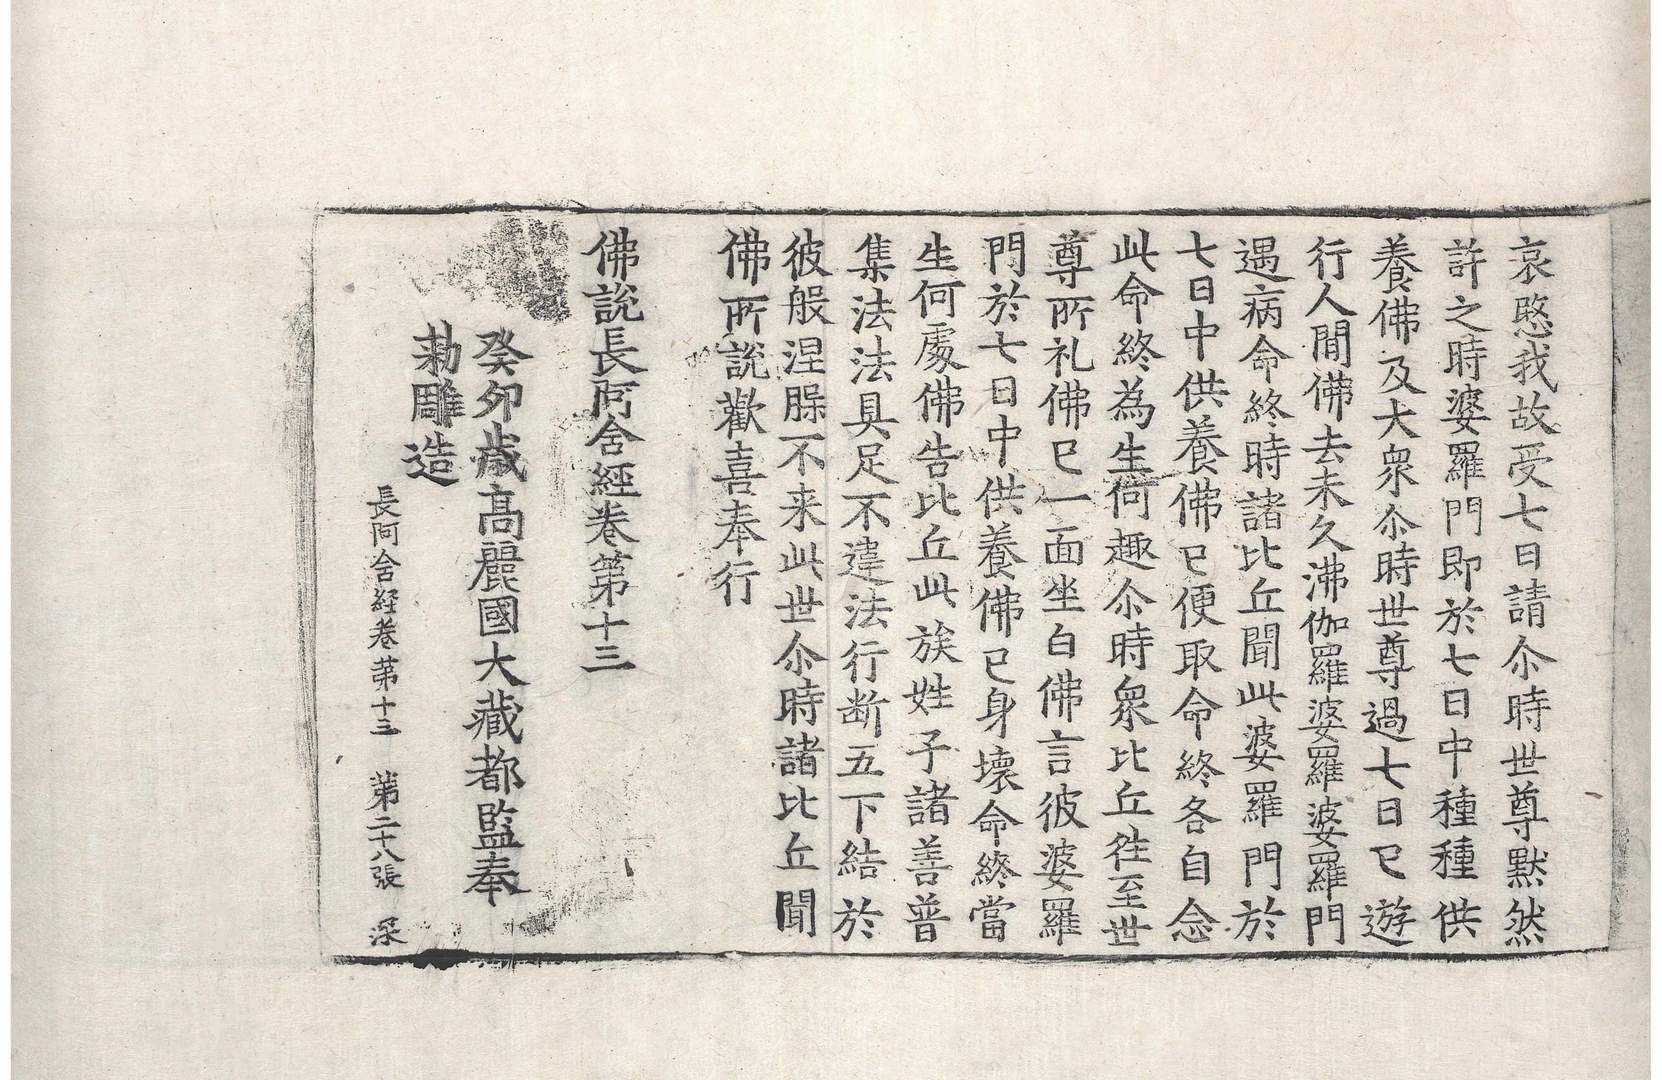 哀愍我故受七日請尒時世尊默然
許之時婆羅門即於七日中種種供
養佛及大衆尒時世尊過七日已遊
行人間佛去未久沸伽羅婆羅婆羅門
遇病命終時諸比丘聞此婆羅門於
七日中供養佛已便取命終各自念
此命終為生何趣尒時衆比丘往至世
尊所礼佛已一面坐白佛言彼婆羅
門於七日中供養佛已身壞命終當
生何處佛告比丘此族姓子諸善普
集法法具足不違法行断五下結於
彼般涅脲不来此世尒時諸比丘聞
佛所說歡喜奉行
佛說長阿含經卷第十三
癸卯歳高麗國大藏都監奉
勅雕造
長阿含経卷苐十三 第二十八張 深